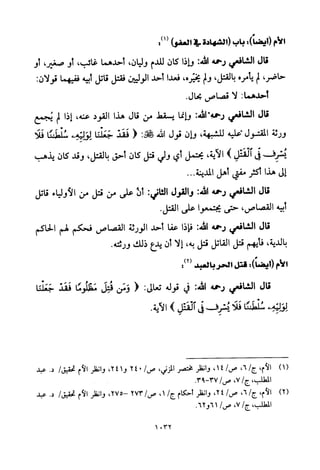 الأم (أيضاً): باب (الشهادة في العفو) (١)
قال الشافعي رحمه الله: وإذا كان للدم وليان، وأحدهما غائب، أو صغير، أو
حاضر، لم يأمر بالقتل، ولم يخيّره، فعدا أحد الوليين فقتل قاتل أبيه ففيهما قولان:
أحدهما: لا قصاص بحال.
قال الشافعي رحمه الله: وإنما يسقط من قال هذا القود عنه، إذا لم يجمع
ورثة المقتول عليه للشبهة، وأن قول الله ﷻ: ﴿ فَقَدْ جَعَلْنَا لِوَلِيِّهِ سُلْطَانًا فَلَا
يُسْرِف فِّي الْقَتْلِ ﴾ الآية، يحتمل أي ولي قتل كان أحق بالقتل، وقد كان يذهب
إلى هذا أكثر مفتي أهل المدينة...
قال الشافعي رحمه الله: والقول الثاني: أنّ على من قتل من الأولياء قاتل
أبيه القصاص، حتى يجتمعوا على القتل.
قال الشافعي رحمه الله: فإذا عفا أحد الورثة القصاص فحكم لهم الحاكم
بالدية، فأيهم قتل القاتل قتل به، إلا أن يدع ذلك ورثته.
الأم (أيضاً): قتل الحر بالعبد (٢)
قال الشافعي رحمه الله: في قوله تعالى: ﴿ وَمَن قُتِلَ مَظْلُومًا فَقَدْ جَعَلْنَا
لِوَلِيِّهِ سُلْطَانًا فَلَا يُسْرِف فِّي الْقَتْلِ ﴾ الآية.
(١) الأم، ج/٦، ص/١٤، وانظر مختصر المزني، ص/٢٤٠ و٢٤١، وانظر الأم تحقيق/ د. عبد
المطلب، ج/٧، ص/٣٧-٣٩.
(٢) الأم، ج/٦، ص/٢٤، وانظر أحكام ج/١، ص/٢٧٣-٢٧٥، وانظر الأم تحقيق/ د. عبد
المطلب، ج/٧، ص/٦١و٦٢.
١٠٣٢